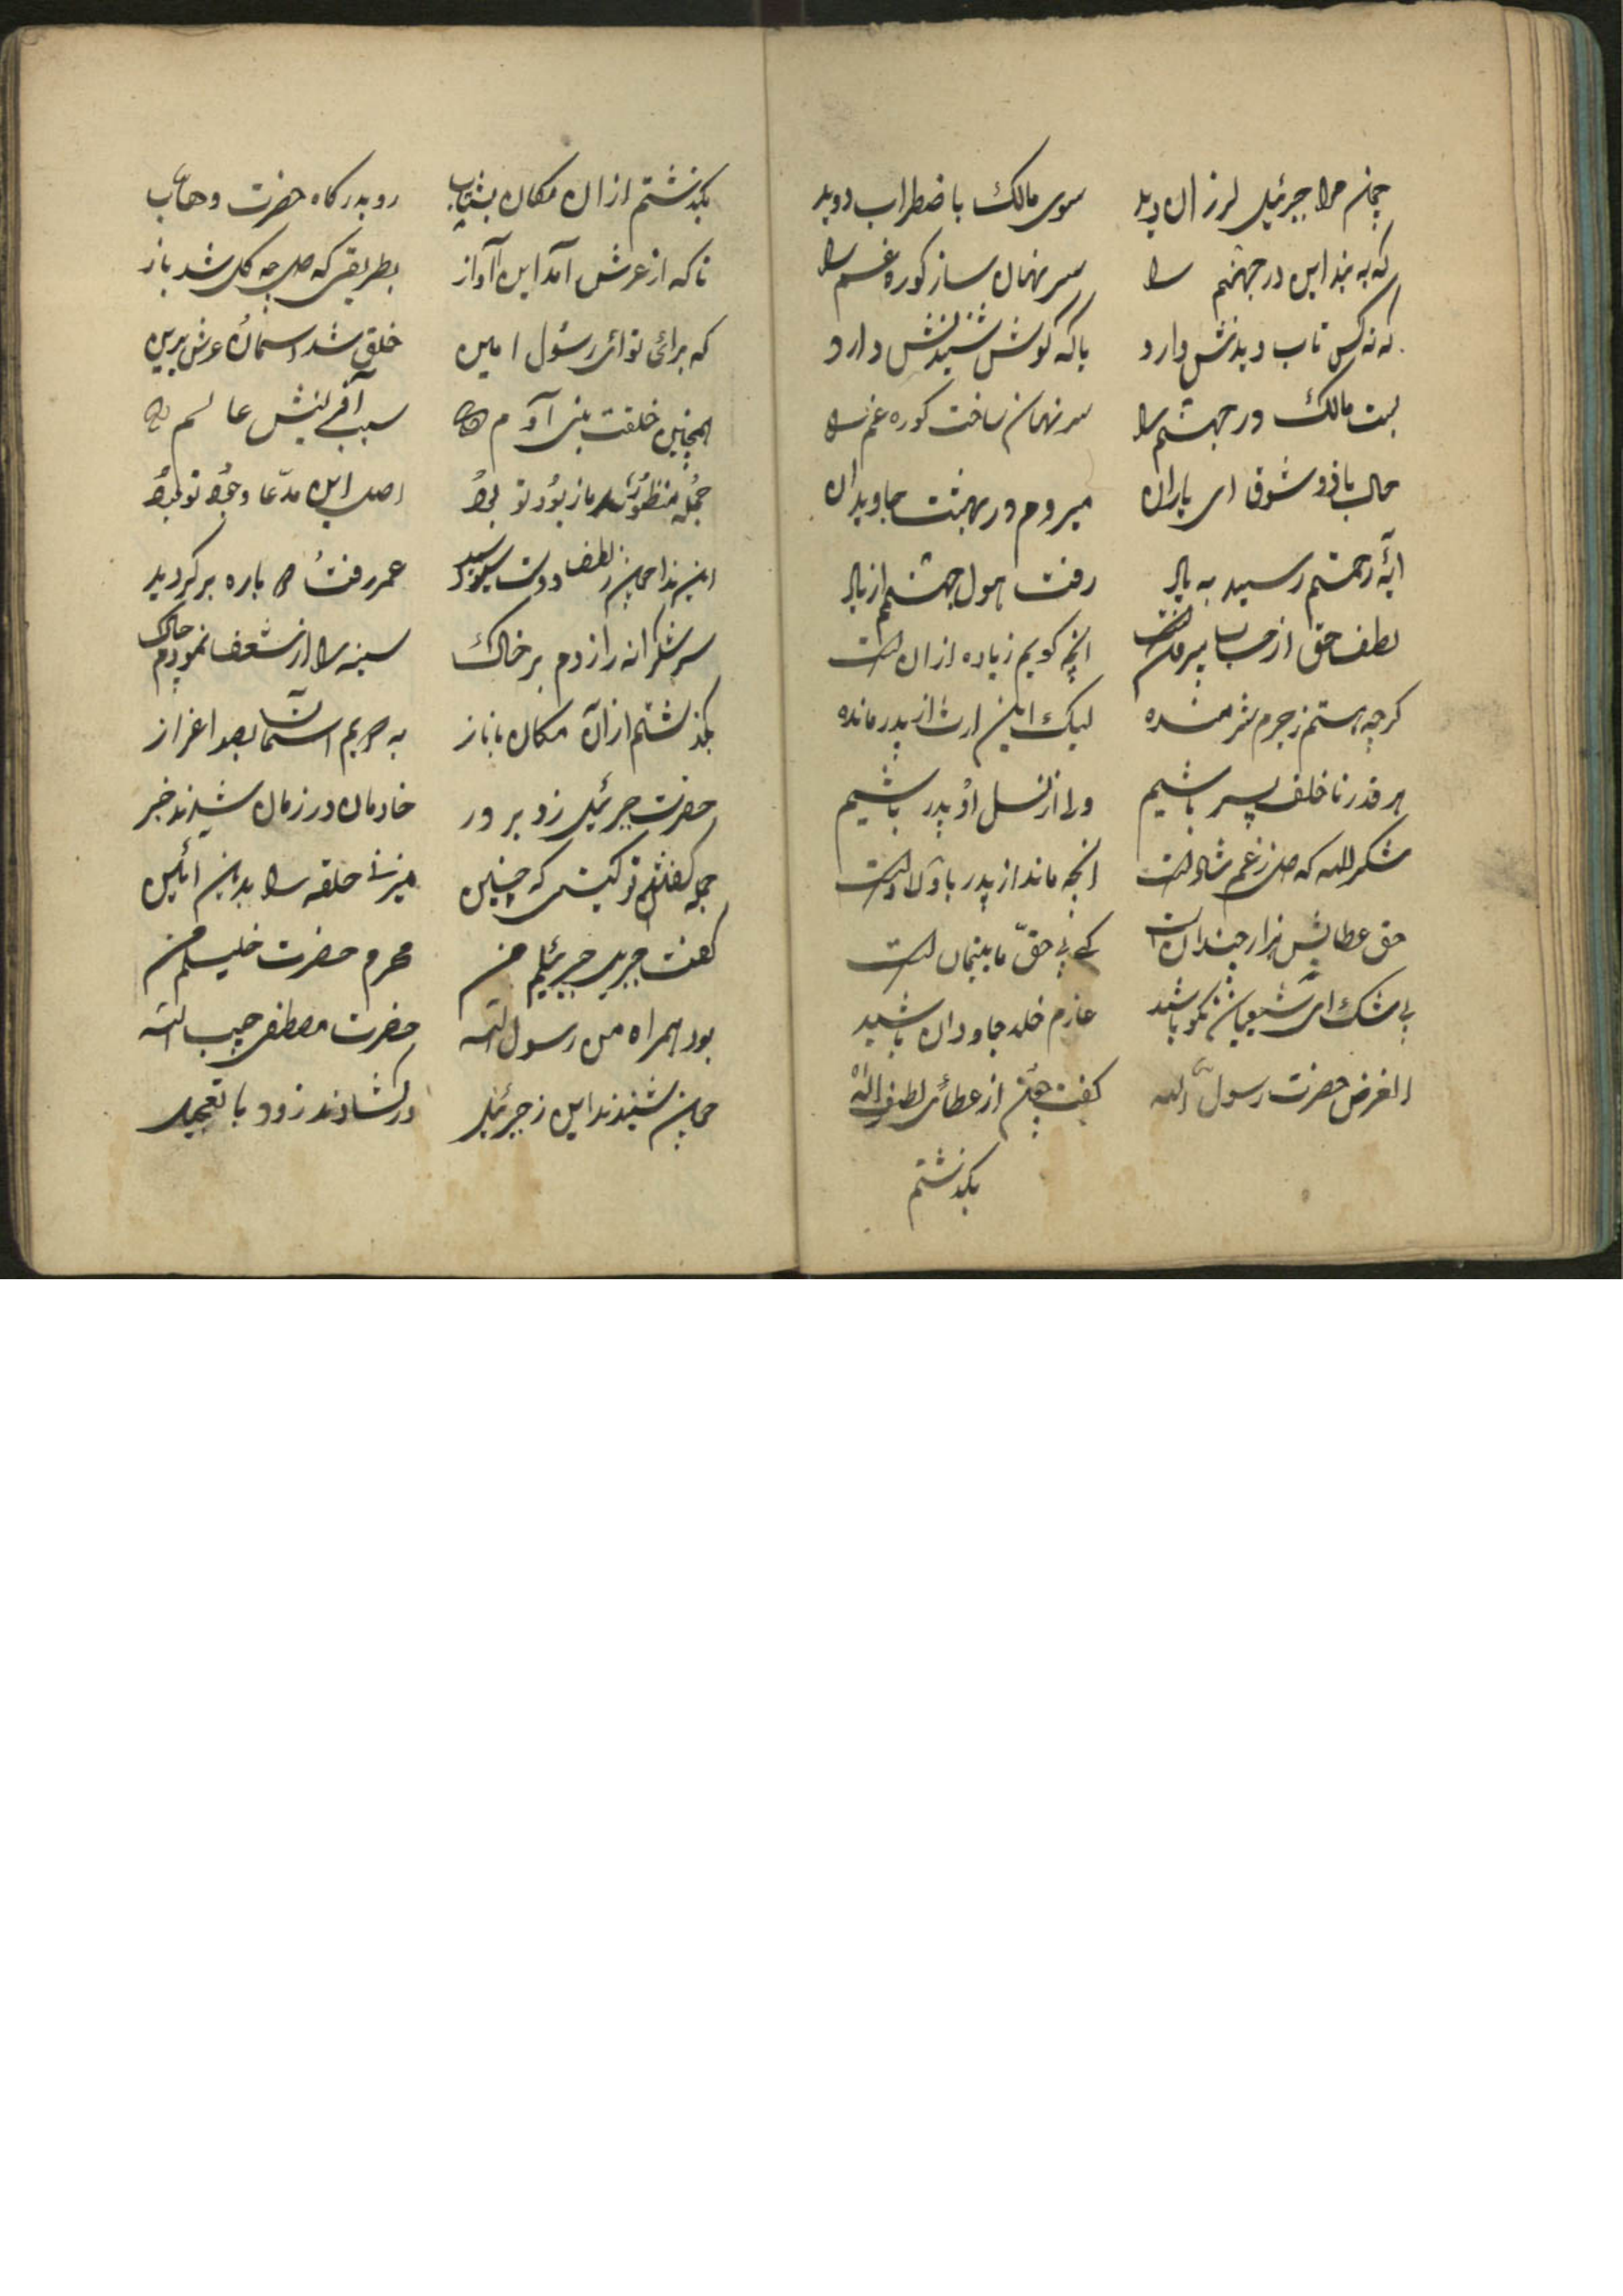 چون مرا جبرئیل لرزان دید سوی مالک باضطراب دوید
که به بند این در جهنم را سر نهان ساز کوره غم را
که نه کس تاب دیدنش دارد یا که کوش شنیدنش دارد
بست مالک در جهنم را سر نهان ساخت کوره غم را
حالیا ذوق شوق ای یاران میروم در بهشت جاویدان
ایهٔ رحمتم رسید به بال رفت هول جهنم از بال
لطف حق از حساب بیرونست انچه کویم زیاده ازانست
کرچه هستم ز جرم شرمنده لیک این ارث از پدر مانده
هر قدر ناخلف پسر باشیم ولد از نسل او پدر باشیم
شکر لله که ز غم شادست انچه ماند از پدر باولادست
حق عطایش هزار چندانست کی پی حق ما یتیمانست
بی شک ای شیعیان نکو باشید عازم خلد جاودان باشید
الغرض حضرت رسول الله کفت چون از عطائی لطف اله
بکذشتم
بکذشتم ازان مکان بشتاب رو بدرکاه حضرت وهاب
ناکه از عرش آمد این آواز بطریقی که چه کل شد باز
که برائی توائی رسول امین خلق شد اسمان و عرش برین
همچنین خلقت بنی آدم سبب آفرینش عالم
جمله منظور ما ز بود تو بود اصل این مدعا وجود تو بود
این ندا چون ز لطف دوست رسید عمر رفته دوباره برکردید
سر شکرانه را زدم بر خاک سینه را از شعف نمودم چاک
بکذشتم ازآن مکان با ناز به حریم اسمان بصد اعزاز
حضرت جبرئیل زد بر در خادمان در زمان شدند خبر
جمله کفتند تو کیستی که چنین میزنی حلقه را بدین ائین
کفت جبریل جبرئیلم من محرم حضرت خلیلم من
بود همراه من رسول الله حضرت مصطفی حبیب الله
چون شنیدند این ز جبرئیل در کشادند زود با تعجیل